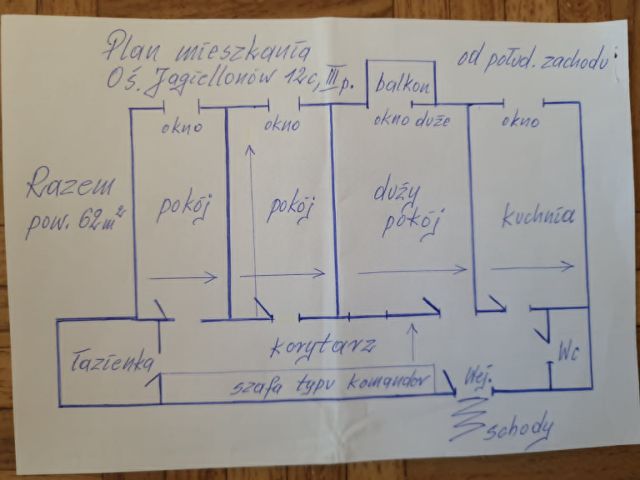 Plan mieszkania
Oś. Jagiellonów 12c, III p.
od połud. zachodu
balkon
okno
okno
okno duże
okno
Razem
pow. 62m²
pokój
pokój
duży
pokój
kuchnia
łazienka
korytarz
Wc
szafa typu komandor
Wej.
schody